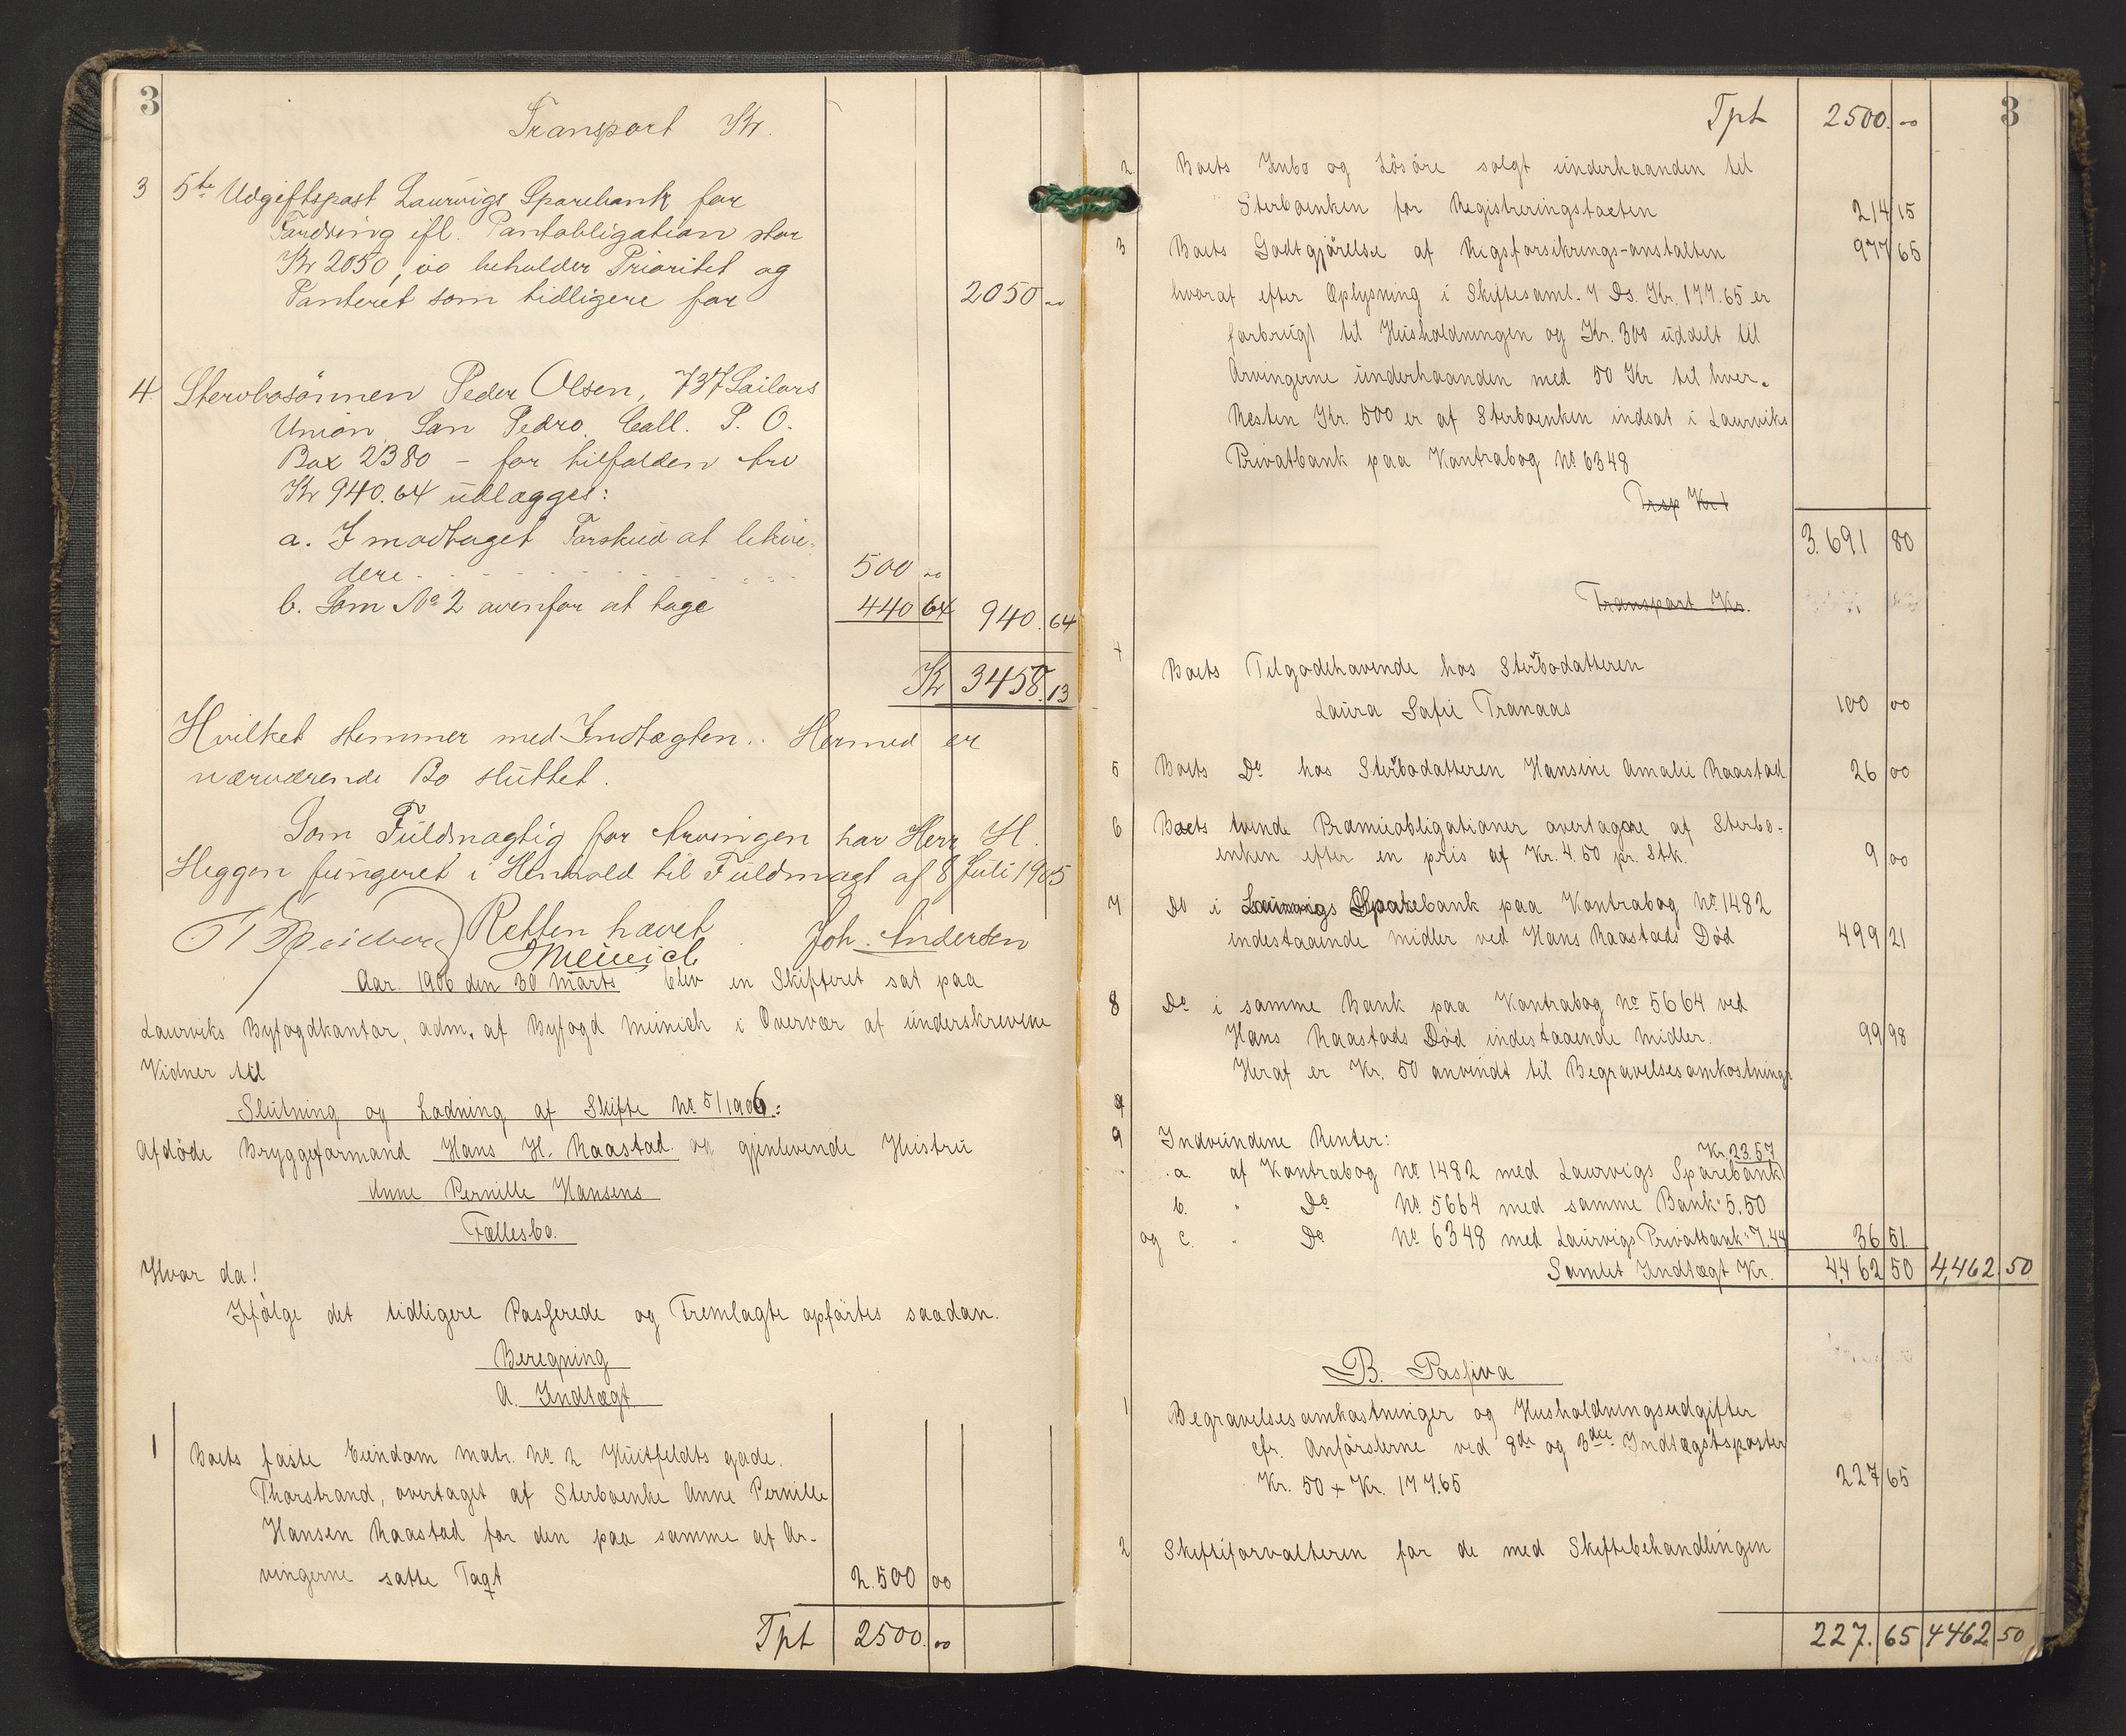 3
Transport Kr.
3 5te Udgiftspost Laurvigs Sparebank for
Fordring ifl. Pantobligation stor
Kr 2050,00 beholder Prioritet og
Panteret som tidligere for 2050 00
4 Stervbosönnen Peder Olsen, 737 Sailors
Union San Pedro. Call. P. O.
Box 2380 - for tilfalden Arv
Kr 940.64 udlægges:
a. I modtaget Forskud at likvi-
dere 500 00
b. Som No 2 ovenfor at tage 440 64 940.64
Kr 3458.13
Hvilket stemmer med Indtægten. Hermed er
nærværende Bo sluttet.
Som Fuldmægtig for Arvingen har Herr H.
Heggen fungeret i Henhold til Fuldmagt af 8 Juli 1905
Retten hævet
Münich Joh. Andersen
Aar 1906 den 30 Marts blev en Skifteret sat paa
Laurviks Byfogdkontor, adm. af Byfogd Münich i Overvær af underskrevne
Vidner til
Slutning og Lodning af Skifte No 5/1906:
Afdöde Bryggeformand Hans H. Raastad og gjenlevende Hustru
Anne Pernille Hansens
Fællesbo.
Hvor da!
Ifölge det tidligere Passerede og Fremlagte opförtes saadan.
Beregning
A. Indtægt
1 Boets faste Eiendom matr. No 2 Huitfeldts gade.
Thorstrand, overtaget af Sterboenke Anne Pernille
Hansen Raastad for den paa samme af Ar-
vingerne satte Taxt 2.500 00
Tpt 2500.00
3
Tpt 2500.00
2. Boets Inbo og Lösöre solgt underhaanden til
Sterboenken for Registreringstaxten 214 15
3 Boets Godtgjörelse af Rigsforsikrings-anstalten 977 65
hvoraf efter Oplysning i Skiftesaml. 7 Ds. Kr. 177.65 er
forbrugt til Husholdningen og Kr. 300 uddelt til
Arvingerne underhaanden med 50 Kr til hver.
Resten Kr. 500 er af Sterboenken indsat i Laurviks
Privatbank paa Kontrabog No 6348
Trsp Kr
3.691 80
Transport Kr.
4 Boets Tilgodehavende hos Sterbodatteren
Laura Sofie Tranaas 100 00
5 Boets Do hos Sterbodatteren Hansine Amalie Raastad 26 00
6 Boets tvende Præmieobligationer overtagne af Sterbo-
enken efter en pris af Kr. 4.50 pr. Stk. 9 00
7 Do i Laurvigs Sparebank paa Kontrabog No 1482
indestaaende midler ved Hans Raastads Död 499 21
8 Do i samme Bank paa Kontrabog No 5664 ved
Hans Raastads Död indestaaende midler. 99 98
Heraf er Kr. 50 anvendt til Begravelsesomkostninger
9 Indvundene Renter: Kr. 23.57
a. af Kontrabog No 1482 med Laurvigs Sparebank
b. " Do No 5664 med samme Bank " 5.50
og c. " Do No 6348 med Laurvigs Privatbank " 7.44 36 51
Samlet Indtægt Kr. 4462 50 4,462.50
B. Passiva
1 Begravelsesomkostninger og Husholdningsudgifter
cfr. Anförslerne ved 8de og 3die Indtægtsposter
Kr. 50 + Kr. 177.65 227 65
2 Skifteforvalteren for de med Skiftebehandlingen
227. 65 4462 50